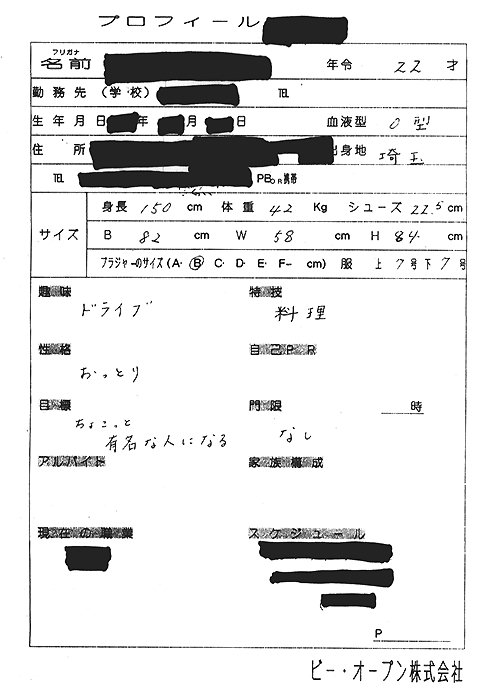 プロフィール
フリガナ
名前 年令 22 才
勤務先(学・校) TEL
生年月日 年 月 日 血液型 O型
住所 出身地 埼玉
TEL PB OR 携帯
サイズ
身長 150 cm 体重 42 Kg シューズ 22.5 cm
B 82 cm W 58 cm H 84 cm
ブラジャーのサイズ(A・B・C・D・E・F− cm) 服 上 7 号 下 7 号
趣味 特技
ドライブ 料理
性格 自己PR
おっとり
目標 門限 時
ちょこっと なし
有名な人になる
アルバイト 家族構成
現在の職業 スケジュール
P
ビー・オープン株式会社